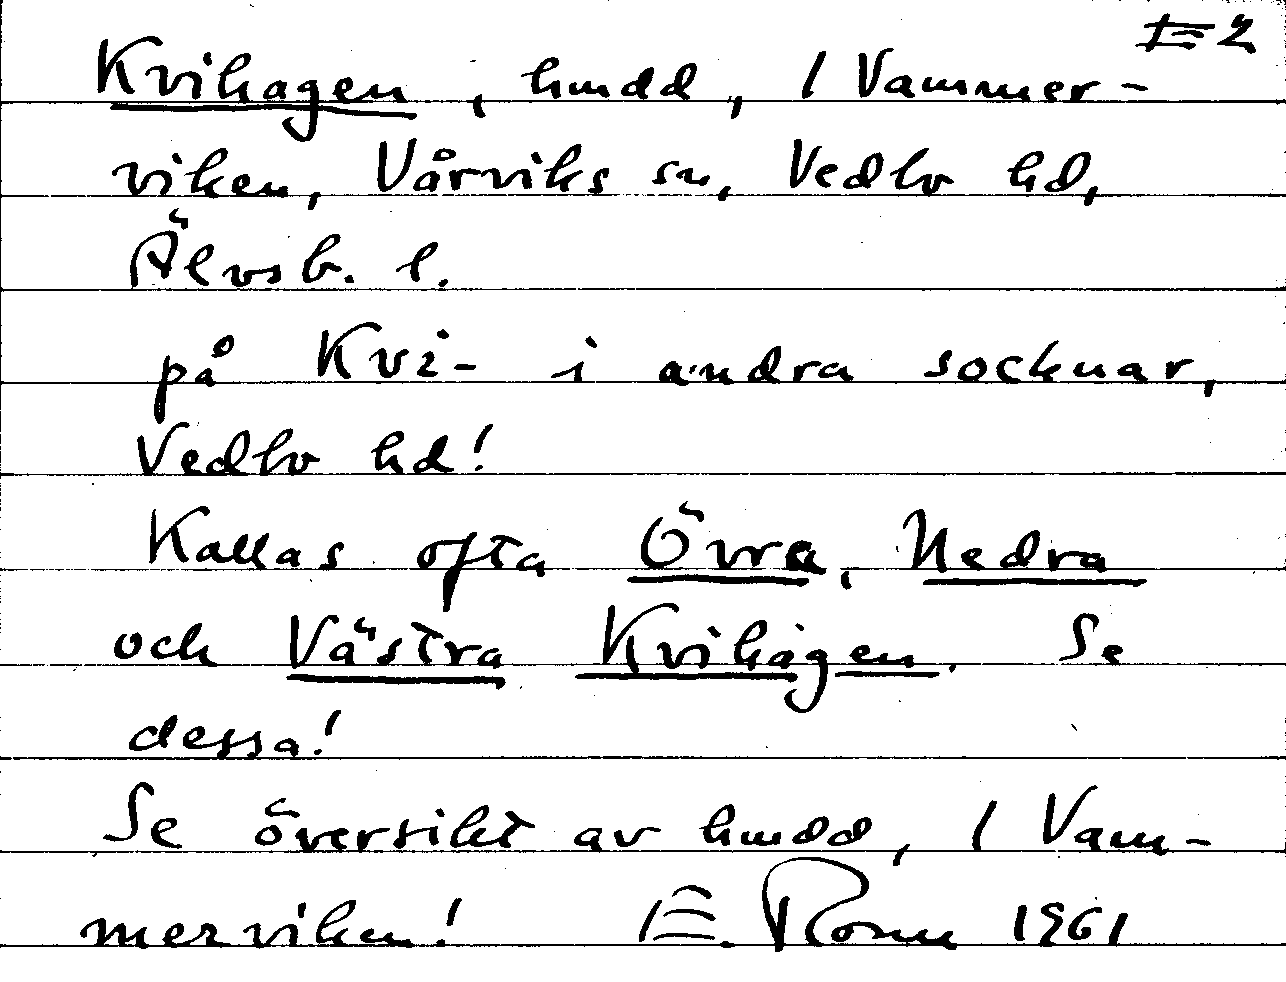 E2
Kvihagen, hmdd, 1 Vammer-
viken, Vårviks sn, Vedbo hd,
Älvsb. l.
på Kvi- i andra socknar,
Vedbo hd!
Kallas ofta Övra, Nedra
och Västra Kvihagen. Se
dessa!
Se översikt av hmdd, 1 Vam-
merviken! E. 1961